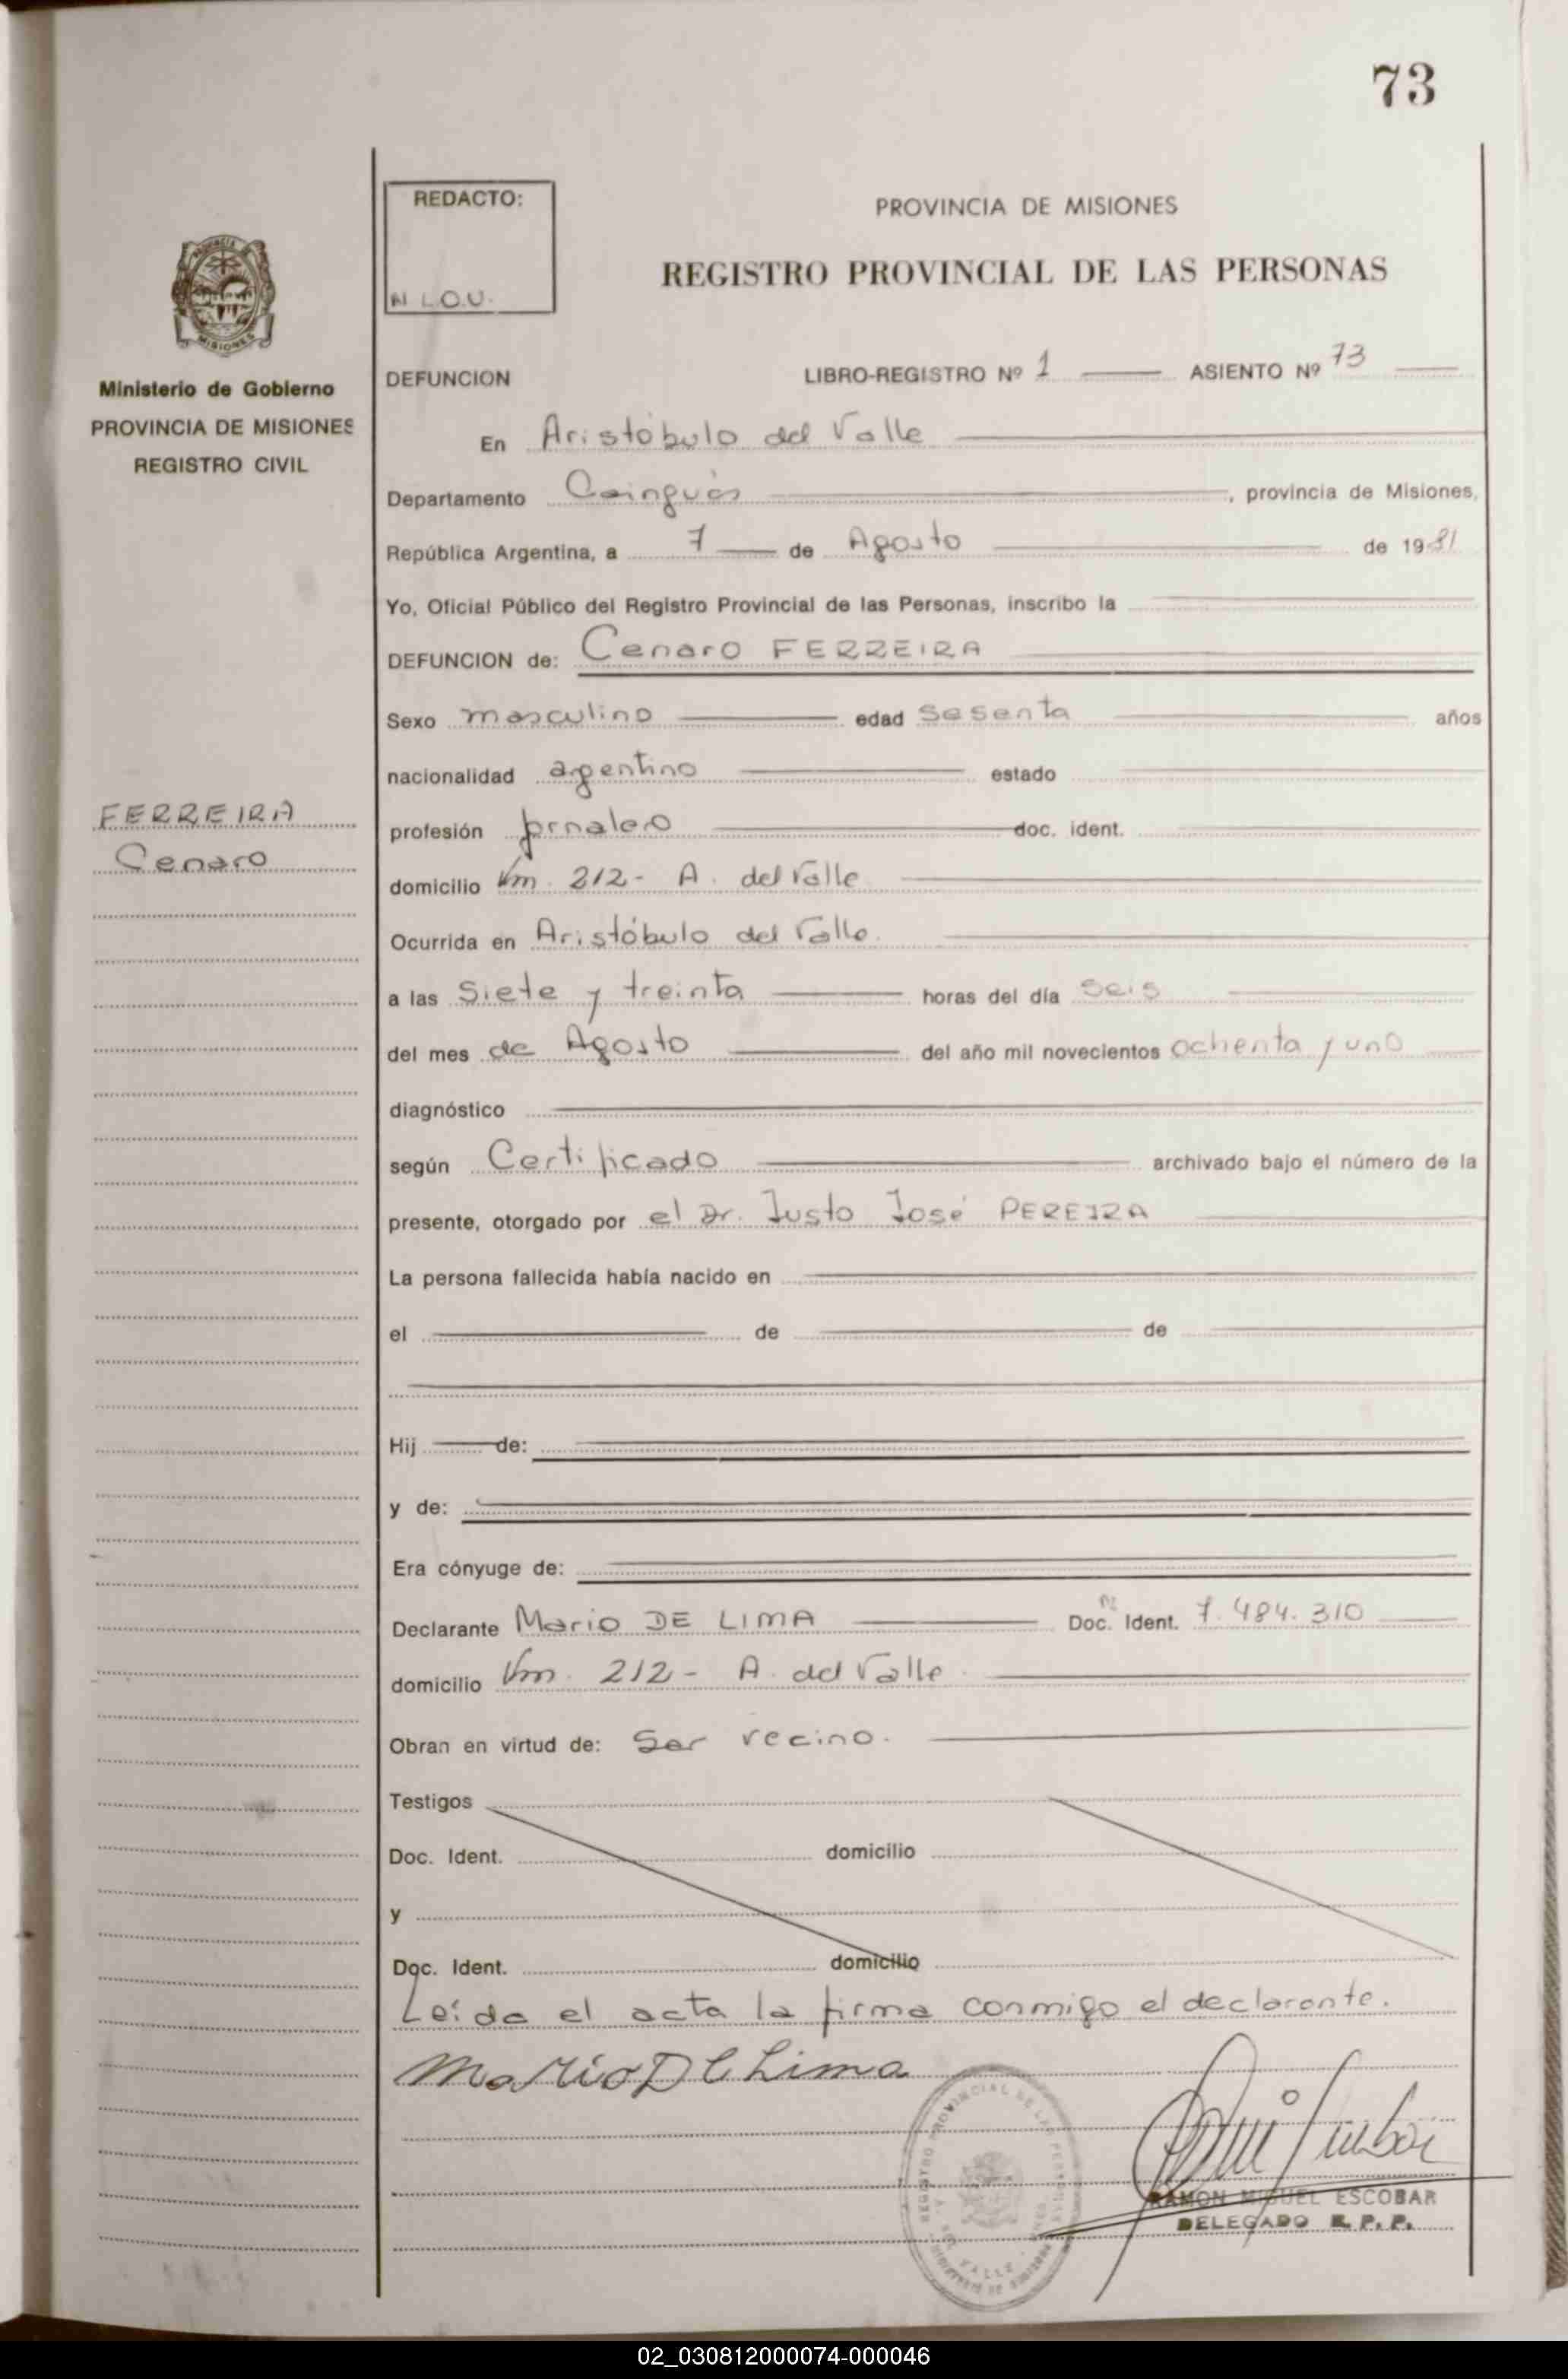 73
REDACTO:
N L.O.V.
PROVINCIA DE MISIONES
REGISTRO PROVINCIAL DE LAS PERSONAS
MISIONES
Ministerio de Gobierno
PROVINCIA DE MISIONES
REGISTRO CIVIL
DEFUNCION LIBRO-REGISTRO Nº 1 ASIENTO Nº 73
En Aristóbulo del Valle
Departamento Cainguás, provincia de Misiones,
República Argentina, a 7 de Agosto de 1981
Yo, Oficial Público del Registro Provincial de las Personas, inscribo la
DEFUNCION de: Cenaro FERREIRA
Sexo masculino edad sesenta años
nacionalidad argentino estado
FERREIRA
Cenaro
profesión jornalero doc. ident.
domicilio Km. 212- A. del Valle
Ocurrida en Aristóbulo del Valle.
a las Siete y treinta horas del día seis
del mes de Agosto del año mil novecientos ochenta y uno
diagnóstico
según Certificado archivado bajo el número de la
presente, otorgado por el Dr. Justo José PEREIRA
La persona fallecida había nacido en
el de de
Hij de:
y de:
Era cónyuge de:
Declarante Mario DE LIMA Doc. Ident. 7.484.310
domicilio Km. 212- A. del Valle.
Obran en virtud de: Ser vecino.
Testigos
Doc. Ident. domicilio
y
Doc. Ident. domicilio
Leída el acta la firma conmigo el declarante.
Mario De Lima
REGISTRO PROVINCIAL DE LAS PERSONAS
RAMON MIGUEL ESCOBAR
DELEGADO R.P.P.
02_030812000074-000046